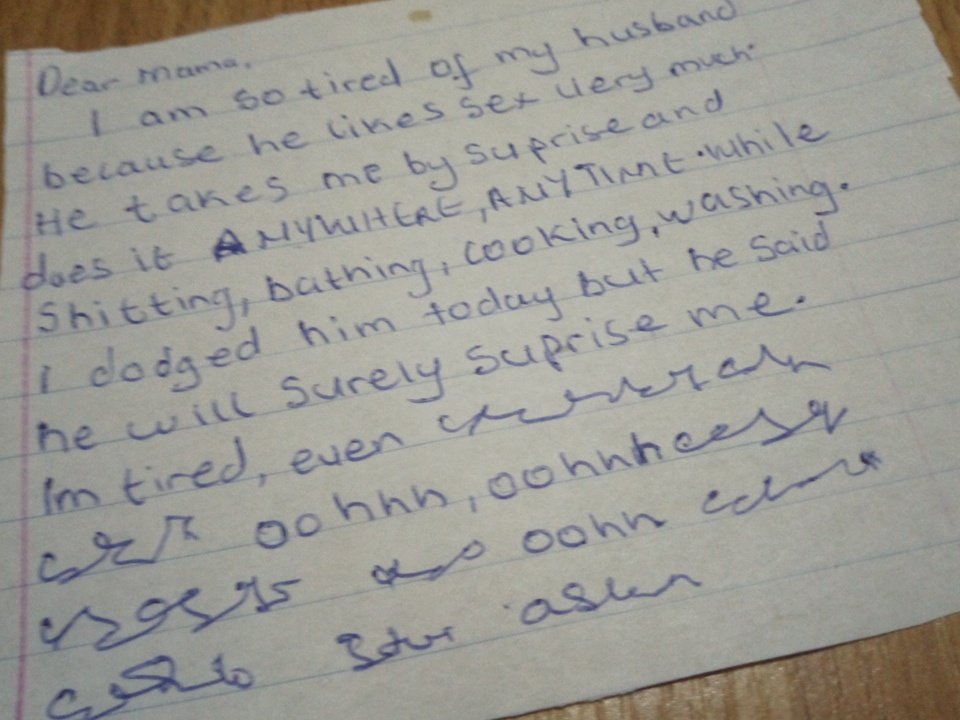 Dear mama,
I am so tired of my husband
because he likes sex very much.
He takes me by suprise and
does it ANYWHERE, ANYTIME. While
Shitting, bathing, cooking, washing.
I dodged him today but he said
he will surely suprise me.
Im tired, even
oohhh, oohhh
oohh